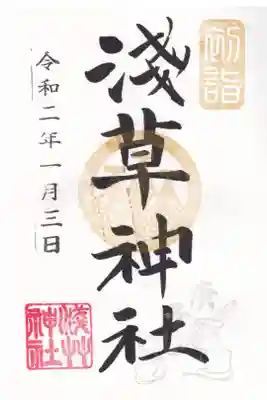 初詣
淺草神社
令和二年一月三日
淺草神社